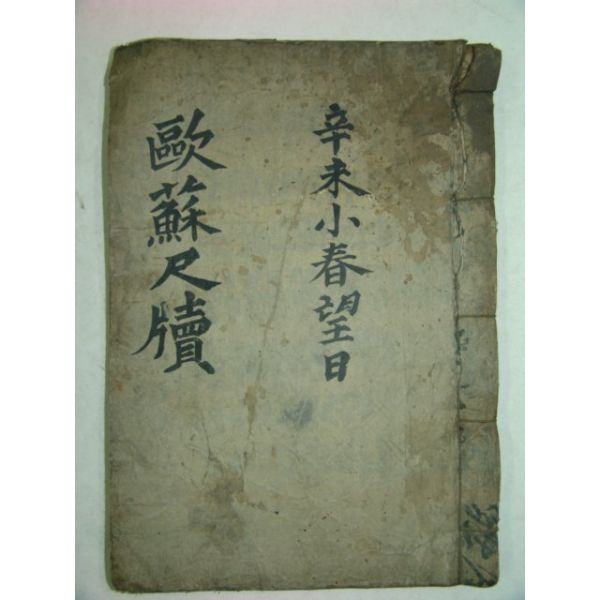 辛未小春望日
歐蘇尺牘